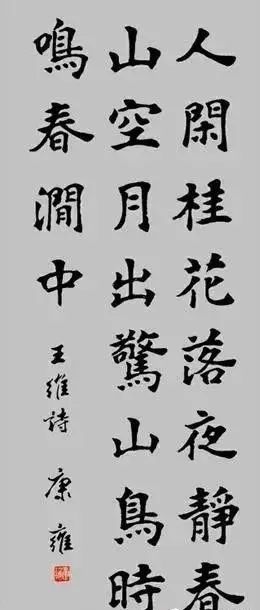 人閑桂花落夜靜春
山空月出驚山鳥時
鳴春澗中
王維詩 康雍